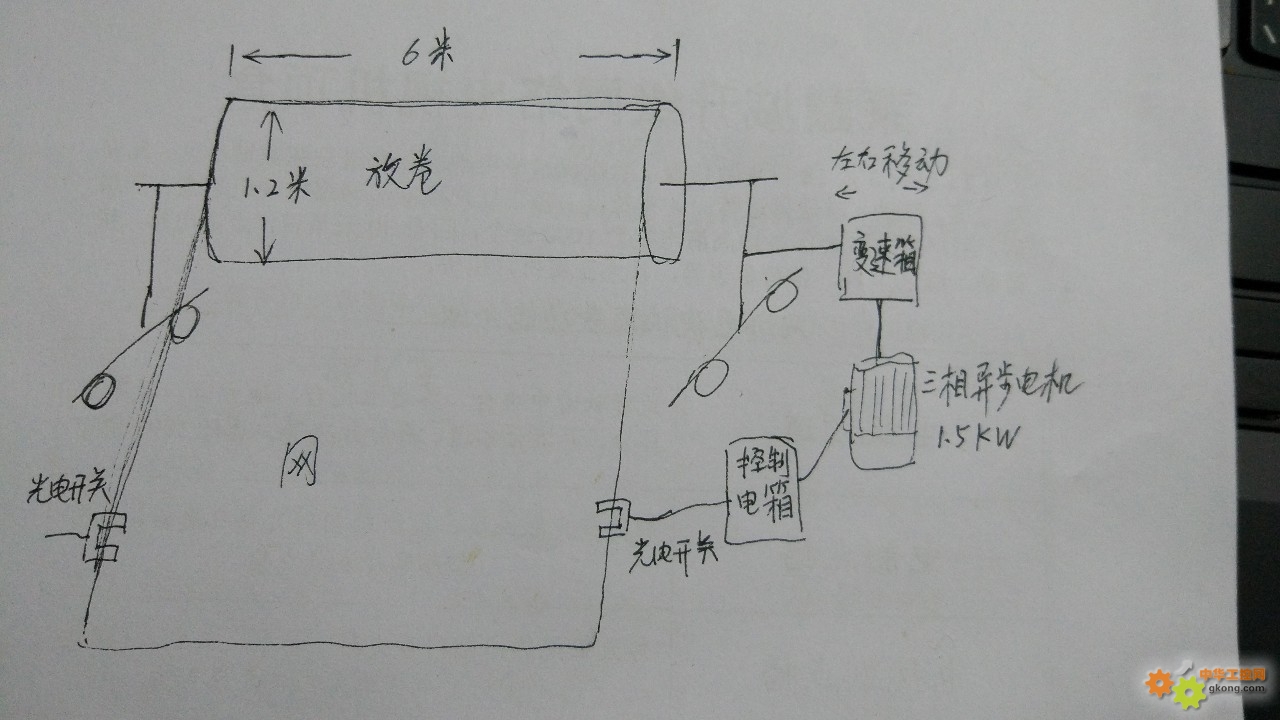 6米
1.2米
放卷
左右移动
变速箱
三相异步电机
1.5KW
控制
电箱
网
光电开关
光电开关
中华工控网
gkong.com